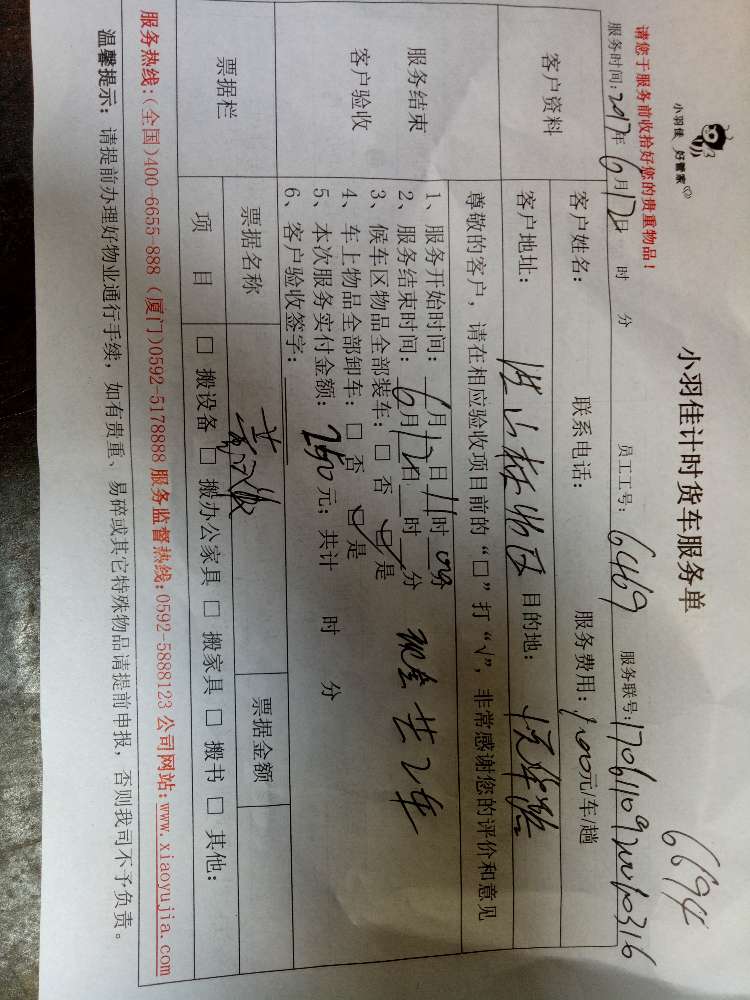 小羽佳 好管家
小羽佳计时货车服务单
6694
请您于服务前收拾好您的贵重物品！
服务时间：2017年6月12日 时 分 员工工号：6469 服务联号：
客户资料
客户姓名： 联系电话： 服务费用： 元/车/趟
客户地址： 目的地：
尊敬的客户，请在相应验收项目前的“□”打“√”，非常感谢您的评价和意见
服务结束
客户验收
1、服务开始时间：6月12日11时00分
2、服务结束时间：6月12日 时 分
3、候车区物品全部装车：□ 否 ☑ 是
4、车上物品全部卸车：□ 否 ☑ 是
5、本次服务实付金额：260元；共计 时 分
6、客户验收签字：
现金 共2车
票据栏
票据名称 票据金额
项 目 □ 搬设备 □ 搬办公家具 □ 搬家具 □ 搬书 □ 其他：
服务热线：(全国)400-6655-888 (厦门)0592-5178888 服务监督热线：0592-5888123 公司网站：www.xiaoyujia.com
温馨提示：请提前办理好物业通行手续，如有贵重、易碎或其它特殊物品请提前申报，否则我司不予负责。